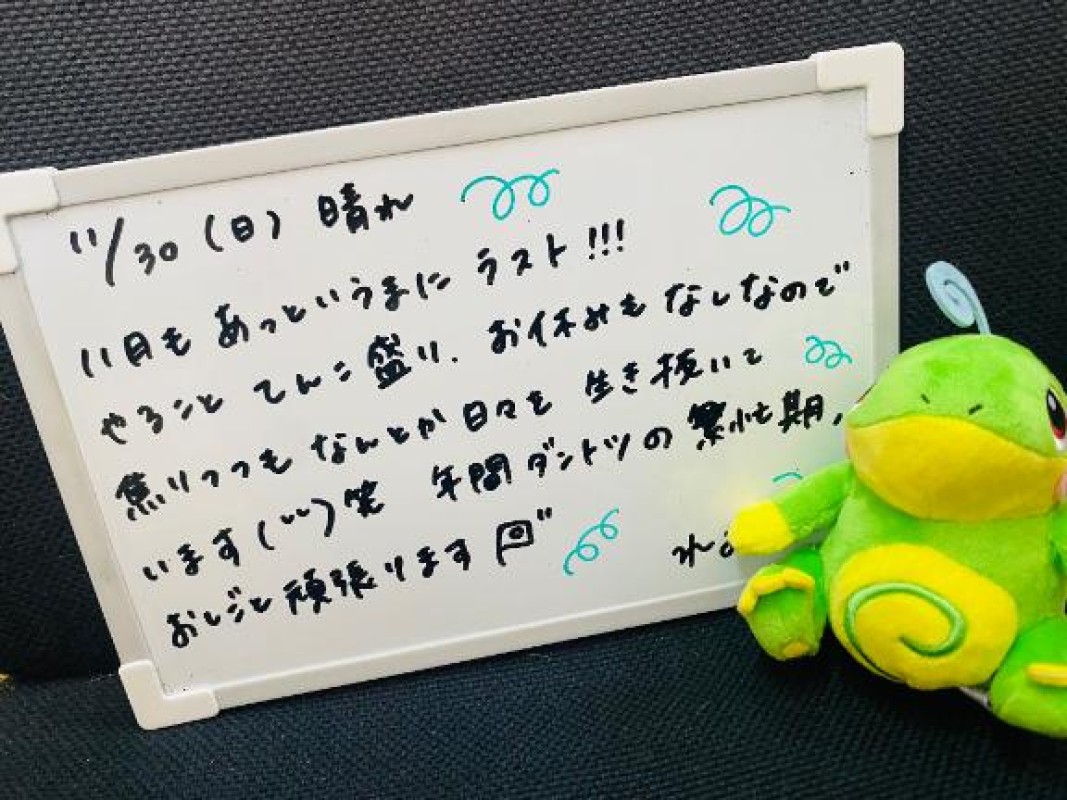 11/30(日) 晴れ
11月もあっというまにラスト!!!
やることてんこ盛り、お休みもなしなので
焦りつつもなんとか日々を生き抜いて
います(^^)笑 年間ダントツの繁忙期、
おしごと頑張ります